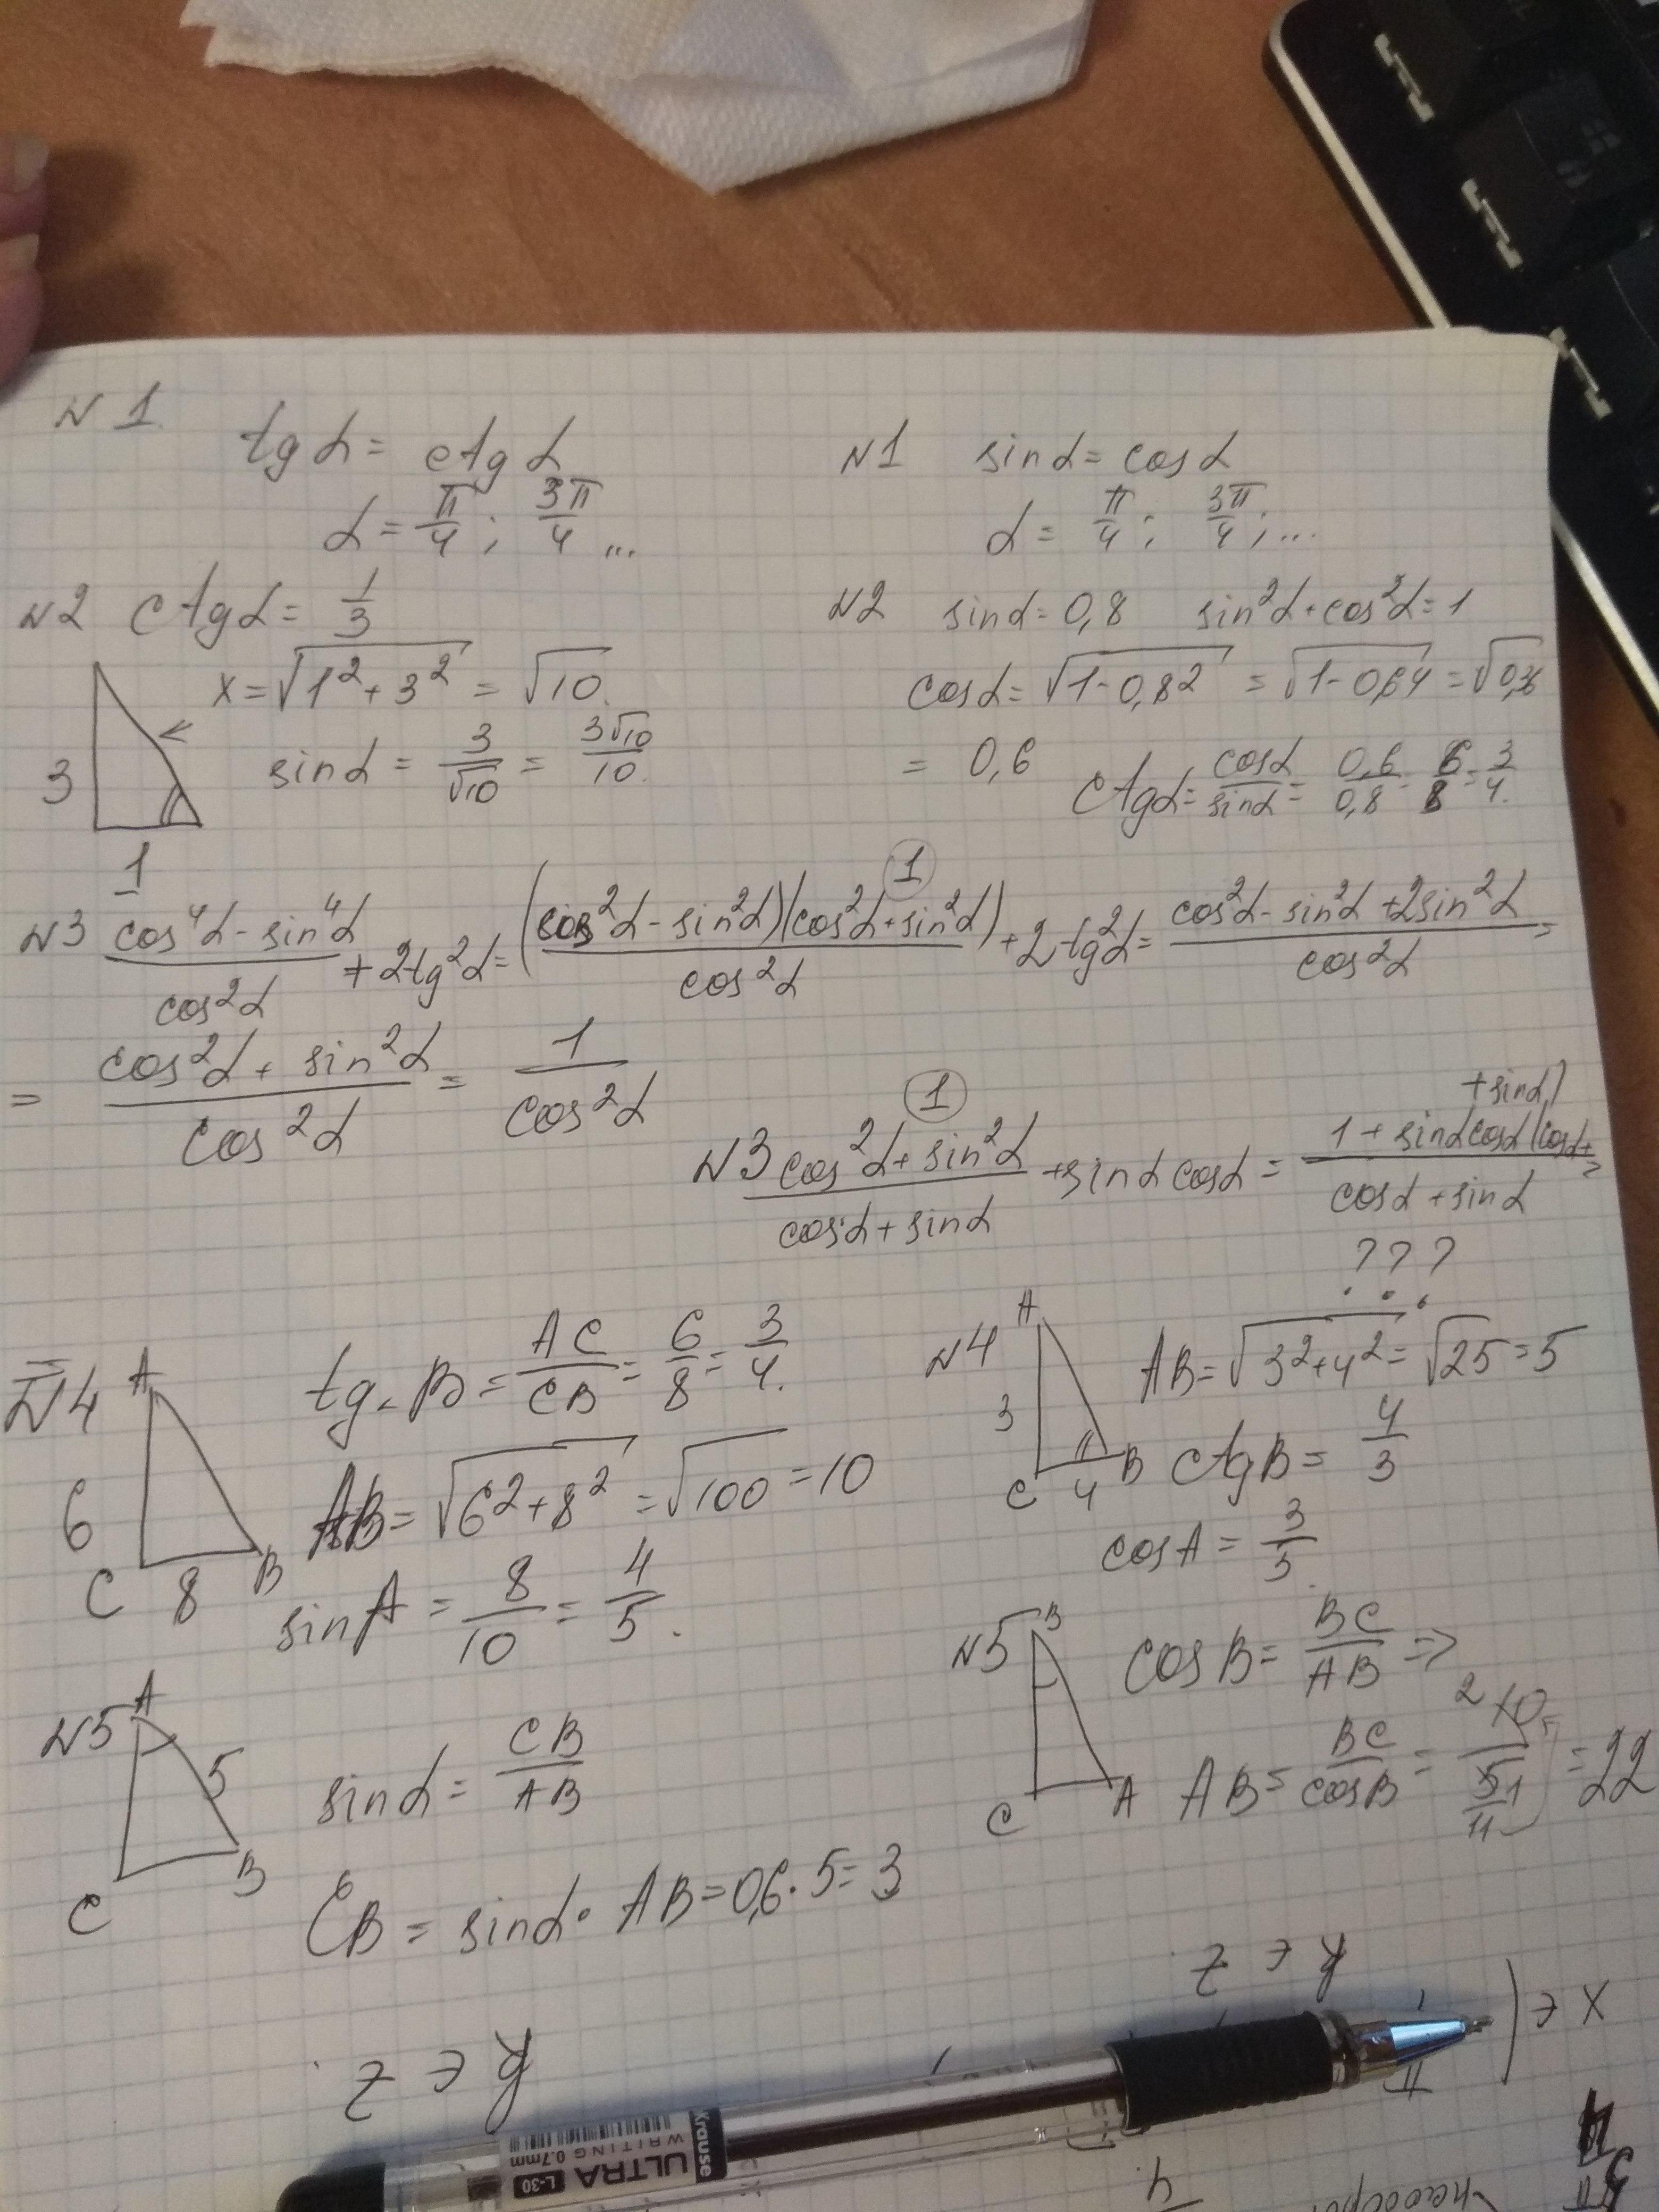 N 1
tg α = ctg α
α = π/4 ; 3π/4 ...
N1 sin α = cos α
α = π/4 ; 3π/4 ; ...
N2 ctg α = 1/3
x = √(1² + 3²) = √10.
3
1
sin α = 3/√10 = 3√10/10.
N2 sin α = 0,8 sin²α + cos²α = 1
cos α = √(1 - 0,8²) = √(1 - 0,64) = √0,36
= 0,6 ctg α = cos α/sin α = 0,6/0,8 = 6/8 = 3/4.
N3 (cos⁴α - sin⁴α)/cos²α + 2tg²α = (cos²α - sin²α)(cos²α + sin²α)/cos²α + 2tg²α = (cos²α - sin²α + 2sin²α)/cos²α =
1
= (cos²α + sin²α)/cos²α = 1/cos²α
1
N3 (cos²α + sin²α)/(cos α + sin α) + sin α cos α = (1 + sin α cos α (cos α + + sin α))/(cos α + sin α) =
? ? ?
N4 A
6
C 8 B
tg B = AC/CB = 6/8 = 3/4.
AB = √(6² + 8²) = √100 = 10
sin A = 8/10 = 4/5.
N4 A
3
C 4 B
AB = √(3² + 4²) = √25 = 5
ctg B = 4/3
cos A = 3/5.
N5 A
5
C B
sin α = CB/AB
CB = sin α · AB = 0,6 · 5 = 3
N5 B
C A
cos B = BC/AB =>
AB = BC/cos B = 10/(5/11) = 22
2
1
y ∈ Z.
x ∈ (
y ∈ Z.
π
4
Krause
WRITING 0.7mm
ULTRA
L-30